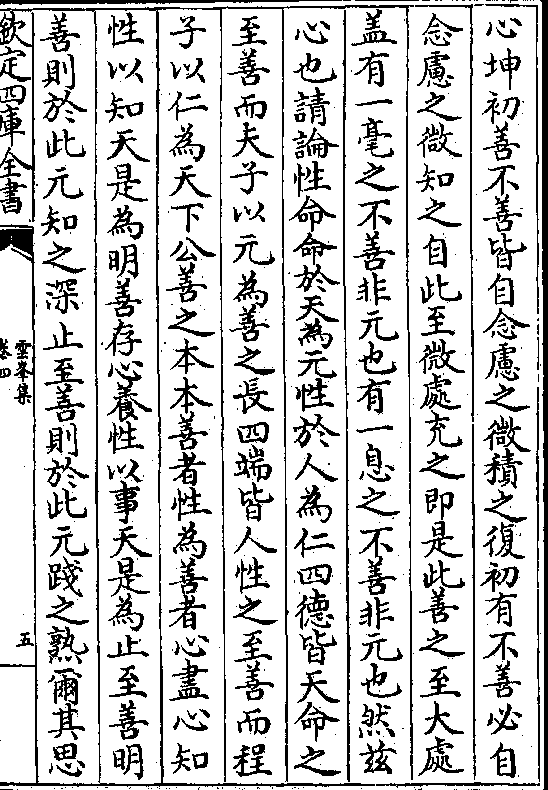 心坤初善不善皆自念慮之微積之復初有不善必自
念慮之微知之自此至微處充之即是此善之至大處
盖有一毫之不善非元也有一息之不善非元也然兹
心也請論性命命於天為元性於人為仁四德皆天命之
至善而夫子以元為善之長四端皆人性之至善而程
子以仁為天下公善之本本善者性為善者心盡心知
性以知天是為明善存心養性以事天是為止至善明
善則於此元知之深止至善則於此元踐之熟爾其思
欽定四庫全書
雲峯集
卷四
五